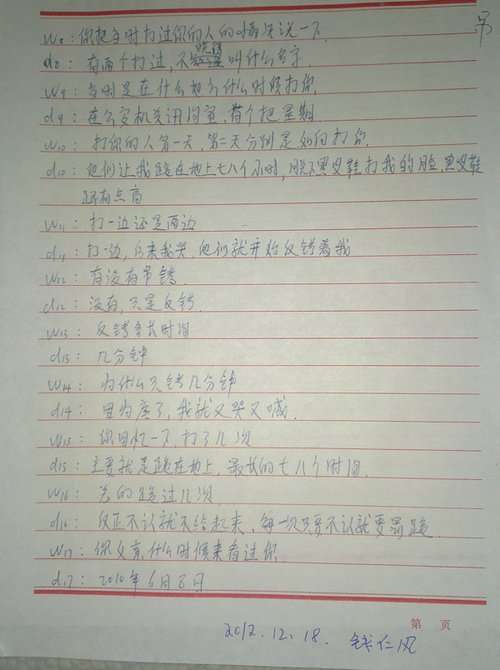 W8：你把当时打过你的人的情况说一下
d8：有两个打过，不晓得叫什么名字
W9：当时是在什么地方什么时候打你
d9：在公安机关讯问室，有个把星期
W10：打你的人第一天、第二天分别是如何打你
d10：他们让我跪在地上七八个小时，脱下鞋打我的脸，鞋
还有点高
W11：打一边还是两边
d11：打一边，后来我哭，他们就开始反铐着我
W12：有没有吊铐
d12：没有，只是反铐
W13：反铐多长时间
d13：几分钟
W14：为什么只铐几分钟
d14：因为疼了，我就又哭又喊
W15：你回忆一下，打了几次
d15：主要就是跪在地上，最长的七八个时间
W16：总的跪过几次
d16：反正不认就不给起来，每一次只要不认就要罚跪
W17：你父亲什么时候来看过你
d17：2010年6月8日
第 页
2012.12.18. 钱仁风